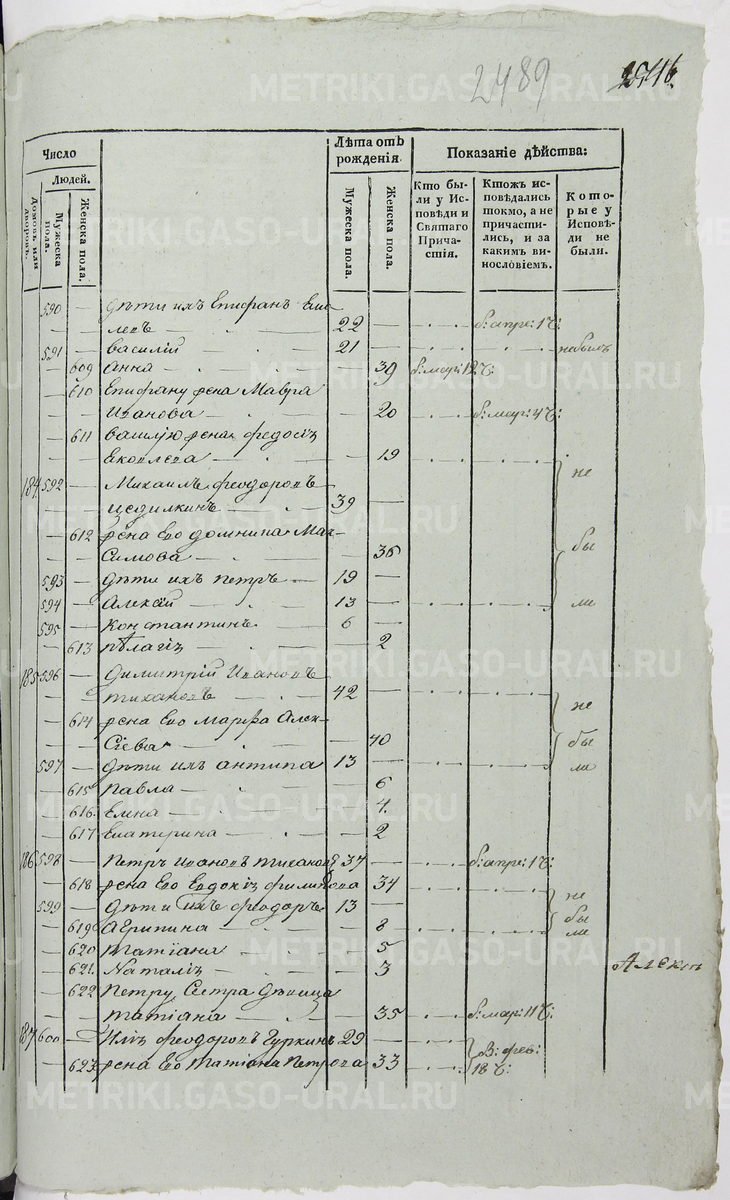 2489
Число
Людей.
Домовъ или дворовъ.
Мужеска пола.
Женска пола.
Лѣта отъ рожденія
Мужеска пола.
Женска пола.
Показаніе дѣйства:
Кто были у Исповѣди и Святаго Причастія.
Ктожъ исповѣдались токмо, а не причастились, и за какимъ винословіемъ.
Которые у Исповѣди не были.
590 — дѣти ихъ Епифанъ
— 22 — б: апре: 1 ч:
591 — Василій — 21 — небылъ
— 609 Анна — 39 б: мар: 12 ч:
— 610 Епифану жена Мавра
Иванова — 20 б: мар: 4 ч:
— 611 Василію жена Федосія
Яковлева — 19
184 592 — Михаилъ Феодоровъ не
39 —
— 612 жена Его Домника Мак-
симова — 36 бы
593 — дѣти ихъ Петръ — 19 —
594 — Алексій — 13 — ли
595 — Константинъ — 6 —
— 613 Пелагія — 2
185 596 — Димитрій Ивановъ
Тихановъ — 42 — не
— 614 жена Его Марфа Алек-
сіева — 40 бы
597 — дѣти ихъ Антипа 13 — ли
— 615 Павла — 6
— 616. Елена — 4.
— 617 Екатерина — 2
186 598 — Петръ Ивановъ Тихановъ 37 — б: апре: 1 ч:
— 618 жена Его Евдокія Филипова 34 не
599 — дѣти ихъ Феодоръ 13 — бы
— 619 Агрипина — 8 ли
— 620 Татіана — 5
— 621. Наталія — 3
— 622 Петру Сестра дѣвица
Татіана — 35 б: мар: 11 ч:
187 600 — Илія Феодоровъ Гуркинъ 29 — В: фев:
— 623 жена Его Татіана Петрова 33 18 ч:
METRIKI.GASO-URAL.RU